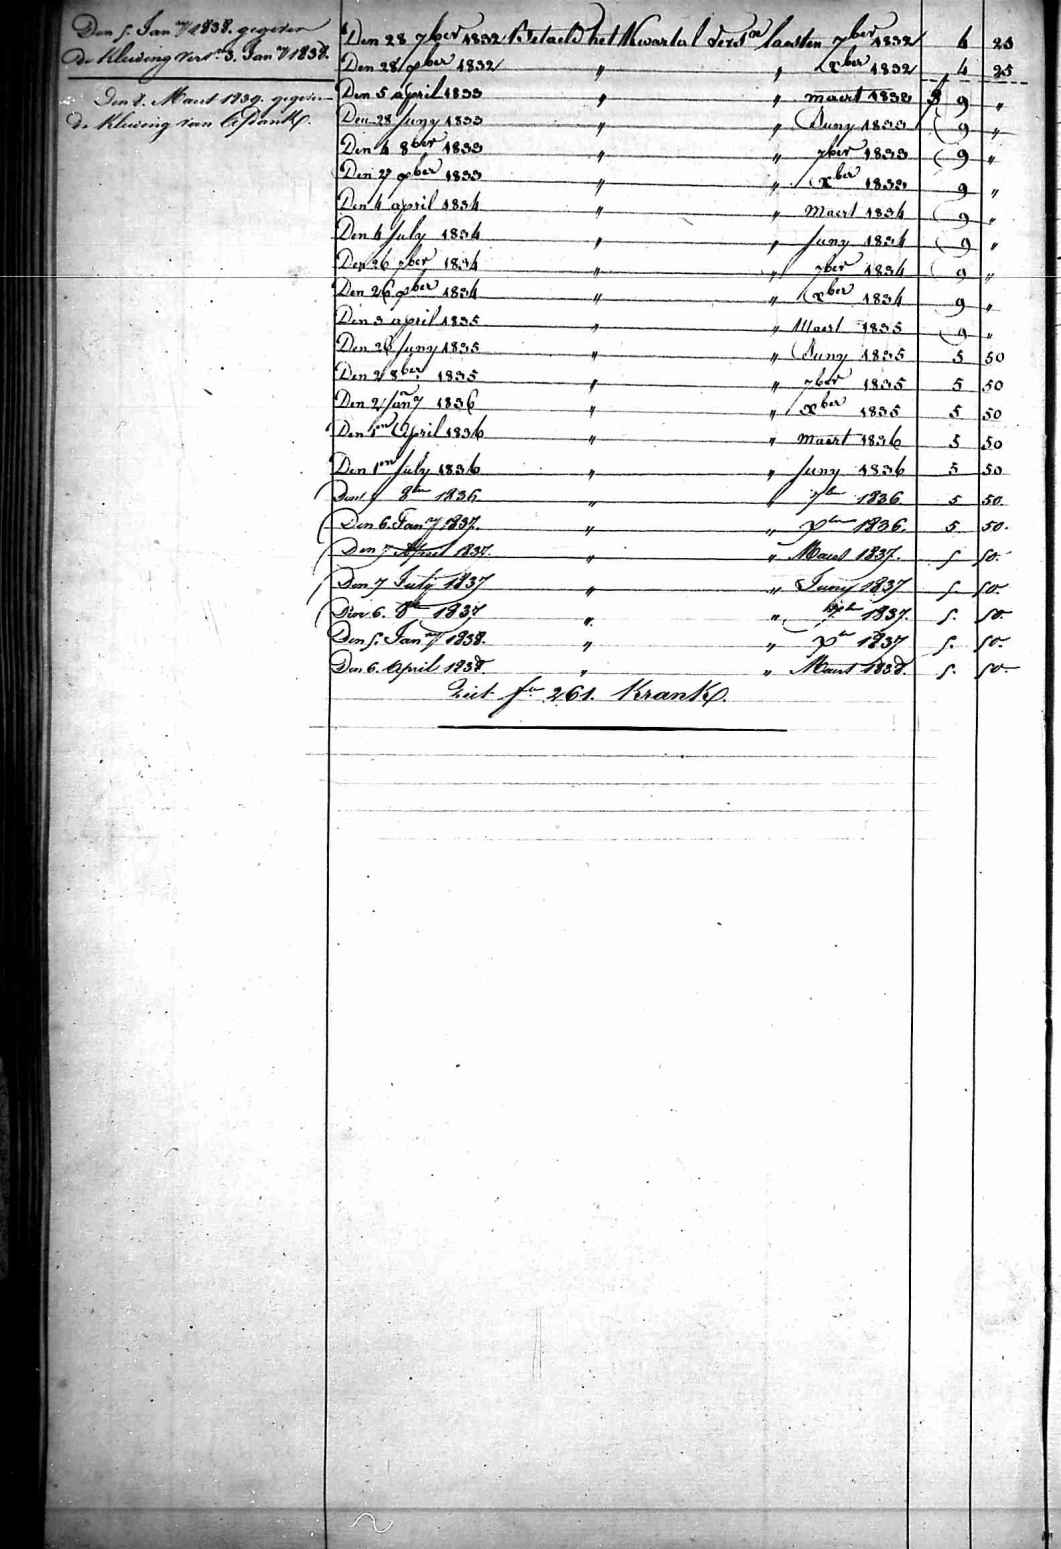 Den 5. Jan.ry 1838. gegeven
de Kleding vers.n 3. Jan.ry 1838.
Den 8. Maart 1839. gegeven
de Kleding van
Den 28 7ber 1832 Betaeld het Kwartal vers.en laasten 7ber 1832 4 25
Den 28 xber 1832 " " xber 1832 4 25
Den 5 april 1833 " " maert 1833 9 "
Den 28 Juny 1833 " " Juny 1833 9 "
Den 4 8ber 1833 " " 7ber 1833 9 "
Den 27 xber 1833 " " xber 1833 9 "
Den 4 april 1834 " " Maert 1834 9 "
Den 4 July 1834 " " Juny 1834 9 "
Den 26 7ber 1834 " " 7ber 1834 9 "
Den 26 xber 1834 " " xber 1834 9 "
Den 3 april 1835 " " Maert 1835 9 "
Den 26 Juny 1835 " " Juny 1835 5 50
Den 2 8ber 1835 " " 7ber 1835 5 50
Den 2 Jany 1836 " " xber 1835 5 50
Den 1en April 1836 " " maert 1836 5 50
Den 1en July 1836 " " Juny 1836 5 50
8ber 1836 " " 7ber 1836 5 50.
Den 6. Jan.ry 1837. " " xber 1836. 5 50.
Den 7 April 1837. " " Maart 1837. 5 50.
Den 7 July 1837 " " Juny 1837 5. 50.
Den 6. 8br 1837 " " 7br 1837. 5. 50.
Den 5. Jan.ry 1838. " " xbr 1837 5. 50.
Den 6. April 1838. " " Maart 1838. 5. 50.
Ziet fo 261. Krankx.